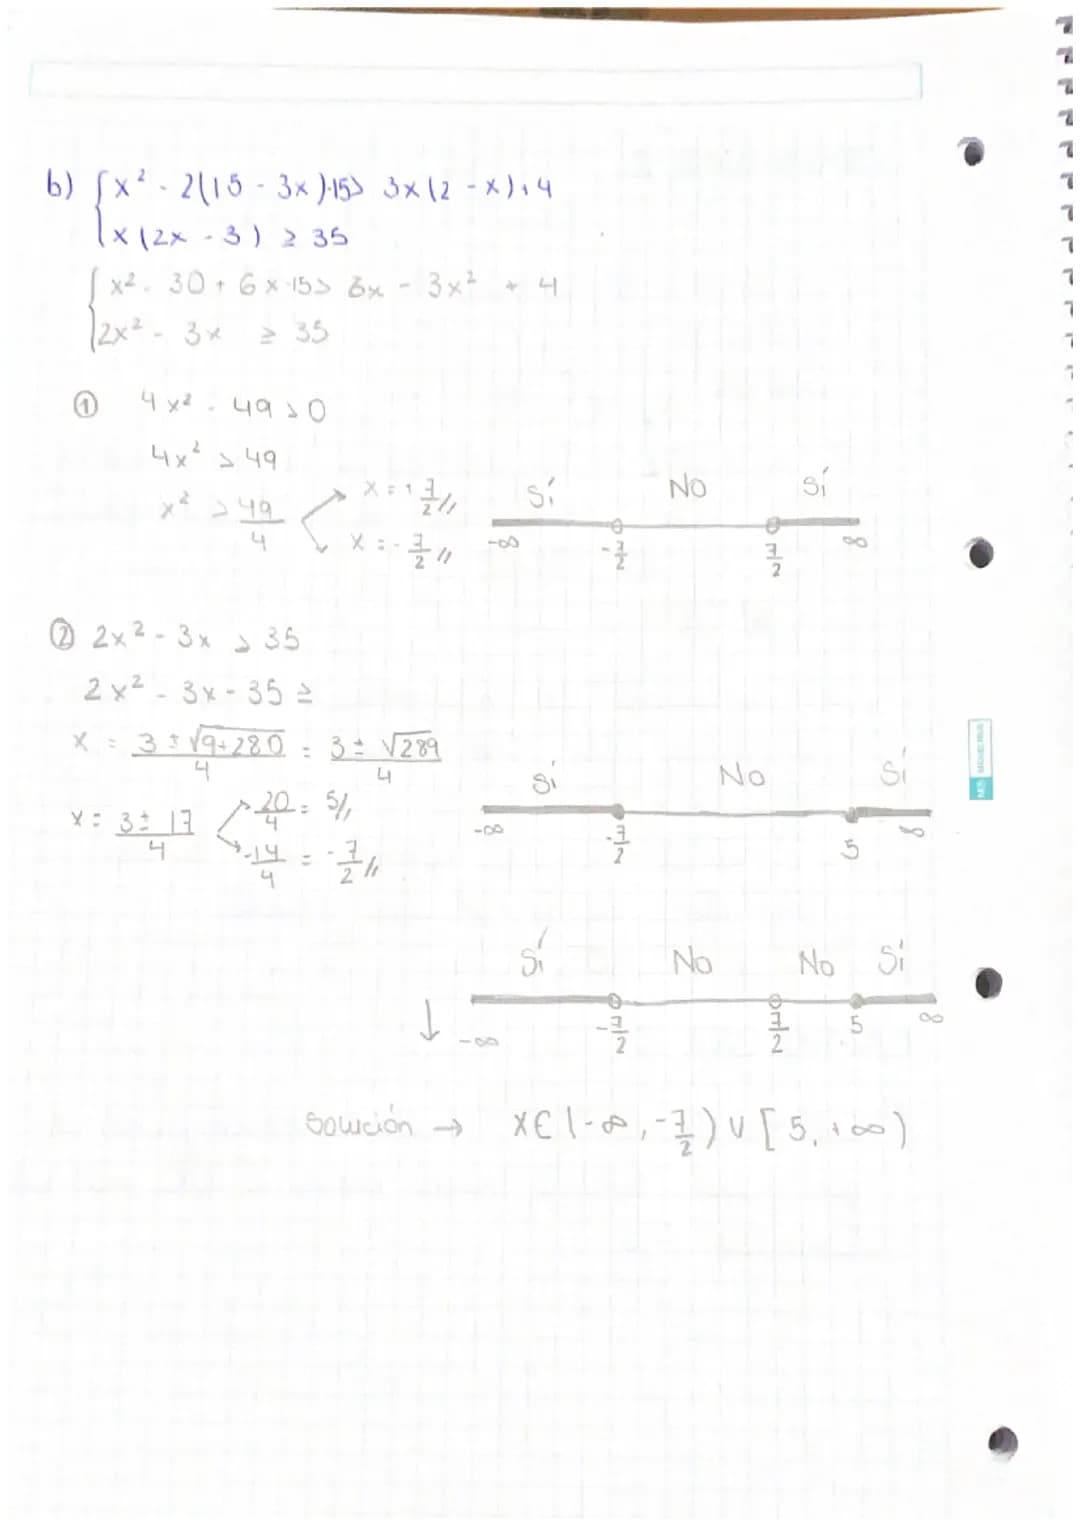 b) { x² - 2(15 - 3x)-15> 3x(2 - x)+4
x(2x - 3) ≥ 35
{ x² - 30 + 6x-15> 6x - 3x² + 4
2x² - 3x ≥ 35
① 4x² - 49 > 0
4x² > 49
x² > 49/4
x = + 7/2 //
x = - 7/2 //
Sí No Sí
-∞ -7/2 7/2 ∞
② 2x² - 3x ≥ 35
2x² - 3x - 35 ≥
x = (3 ± √9+280)/4 = (3 ± √289)/4
x = (3 ± 17)/4
20/4 = 5//
-14/4 = -7/2 //
Sí No Sí
-∞ -7/2 5 ∞
Sí No No Sí
↓ -∞ -7/2 7/2 5 ∞
Solución → x∈(-∞, -7/2) ∪ [5, +∞)